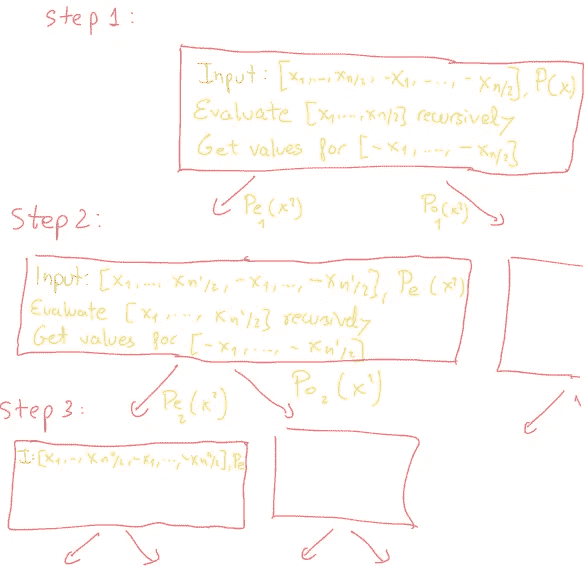 step 1:
Input: [x₁,..,x_n/2, -x₁, ..., -x_n/2], P(x)
Evaluate [x₁,...,x_n/2] recursively
Get values for [-x₁,...,-x_n/2]
Pe₁(x²) Po₁(x²)
Step 2:
Input: [x₁, ..., x_n'/2, -x₁, ..., -x_n'/2], Pe(x²)
Evaluate [x₁, ..., x_n'/2] recursively
Get values for [-x₁, ..., -x_n'/2]
Pe₂(x²) Po₂(x²)
Step 3:
I:[x₁,..,x_n"/2,-x₁,...,-x_n"/2],Pe